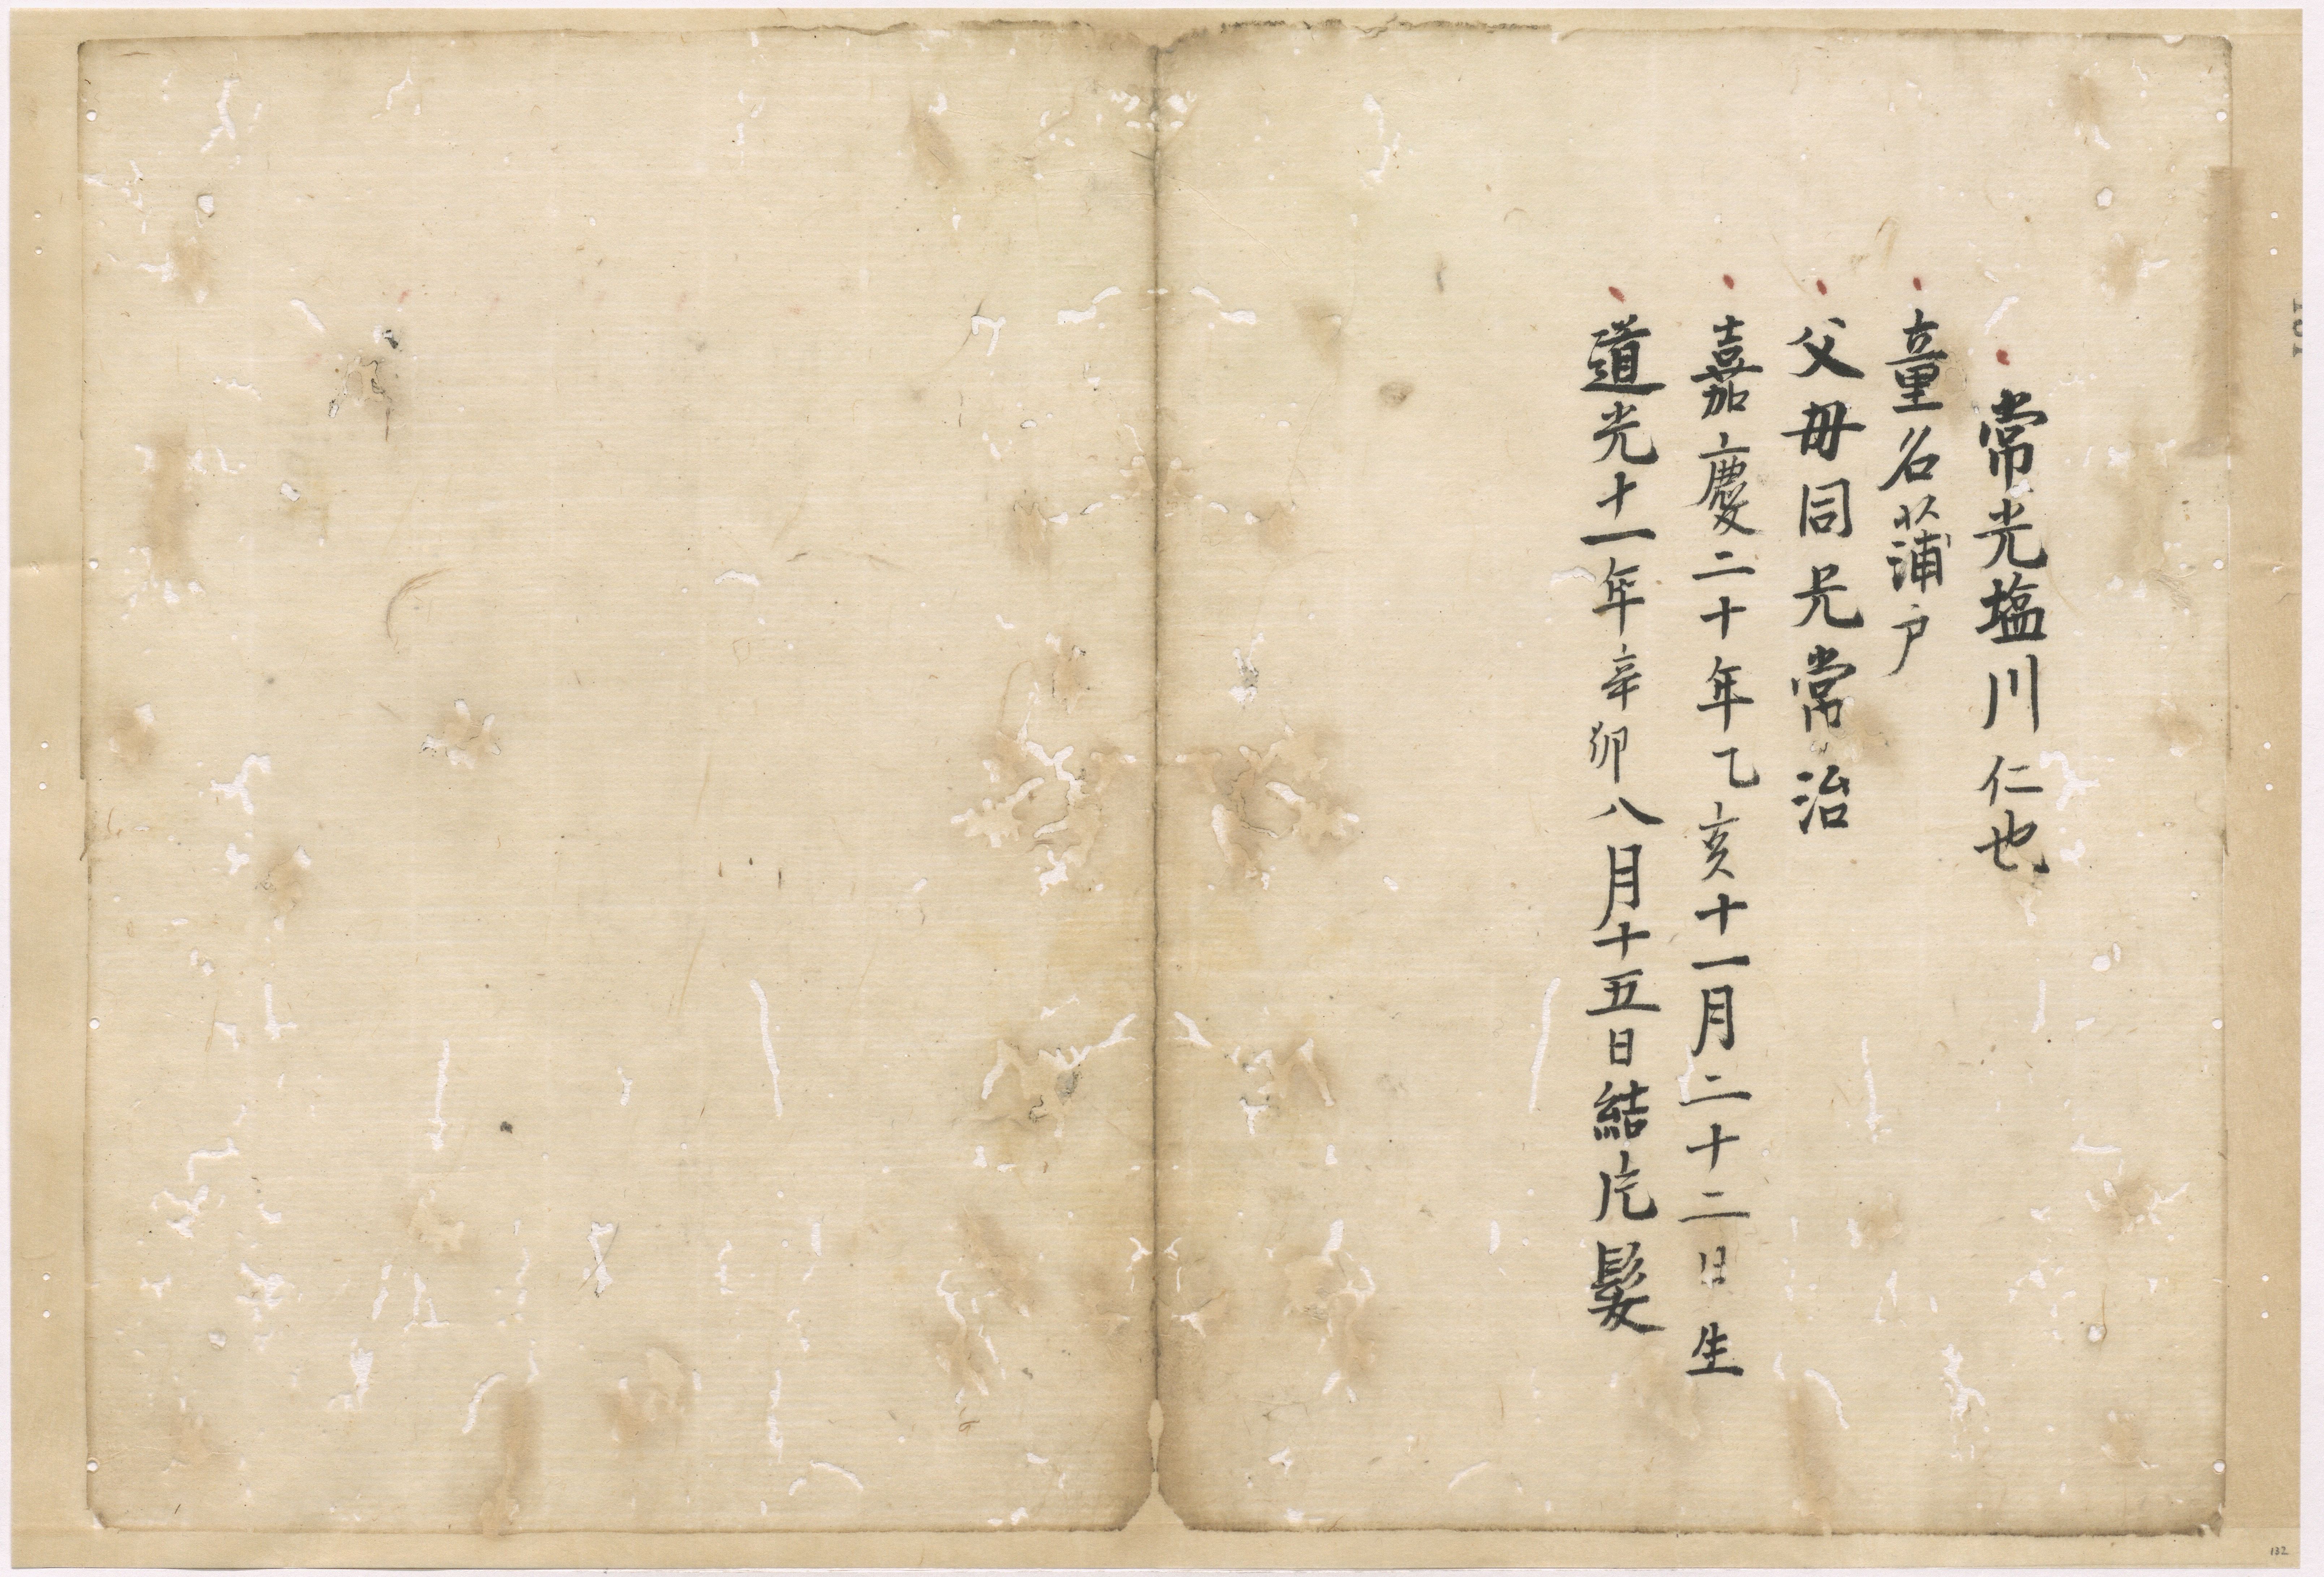 常光塩川仁也
童名蒲戸
父母同兄常治
嘉慶二十年乙亥十一月二十二日生
道光十一年辛卯八月十五日結片髪
132